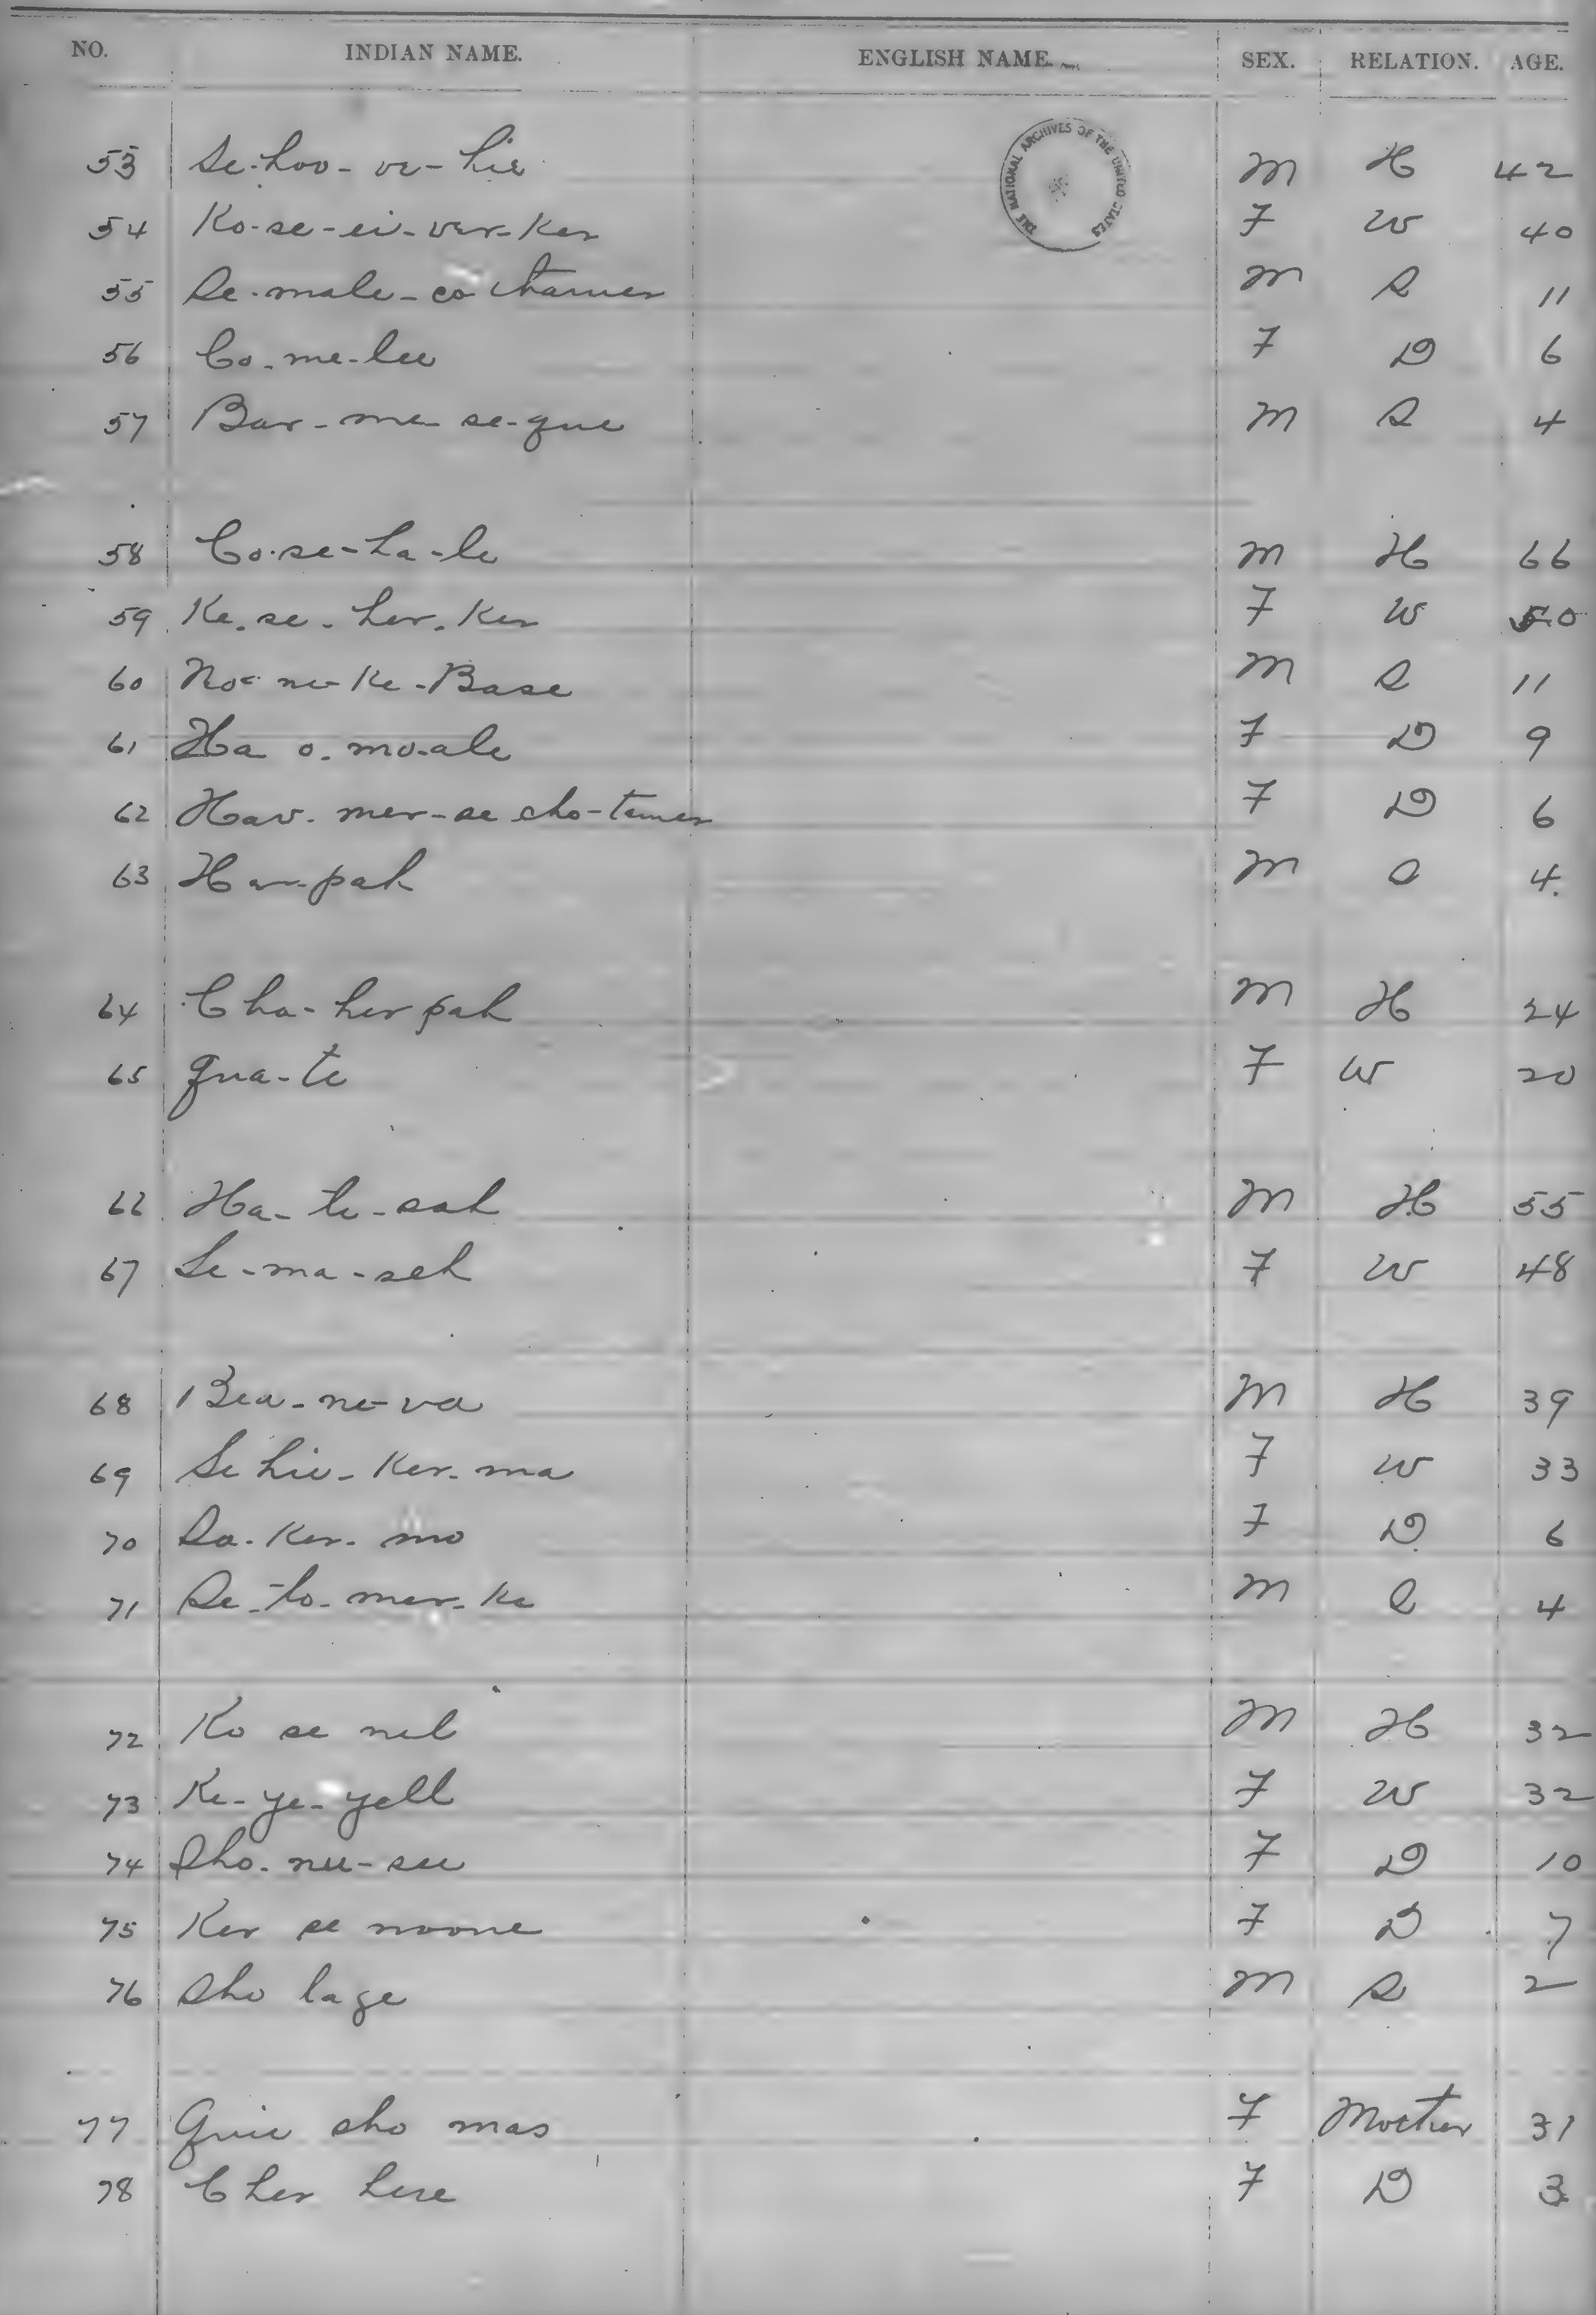 NO. INDIAN NAME. ENGLISH NAME. SEX. RELATION. AGE.
THE NATIONAL ARCHIVES OF THE UNITED STATES
53 Se-hoo-ve-hie M H 42
54 Ko-se-ei-ver-Ker F W 40
55 Se-male-co tharmer M S 11
56 Co-me-lee F D 6
57 Bar-me-se-que M S 4
58 Co-se-ha-le M H 66
59 Ke-se-her-Ker F W 50
60 Noe-ne-Ke-Base M S 11
61 Ha o-mo-ale F D 9
62 Hav-mer-se cho-tamer F D 6
63 Har-pah M S 4
64 Cha-her pah M H 24
65 Qua-te F W 20
66 Ha-te-sah M H 55
67 Le-ma-seh F W 48
68 Bea-ne-va M H 39
69 Se hie-Ker-ma F W 33
70 Sa-Ker-mo F D 6
71 Se-to-mer-Ke M S 4
72 Ko se nel M H 32
73 Ke-ye-yell F W 32
74 Sho-nee-see F D 10
75 Ker se noone F D 7
76 Sho lage M S 2
77 Quie sho mas F Mother 31
78 Cher here F D 3